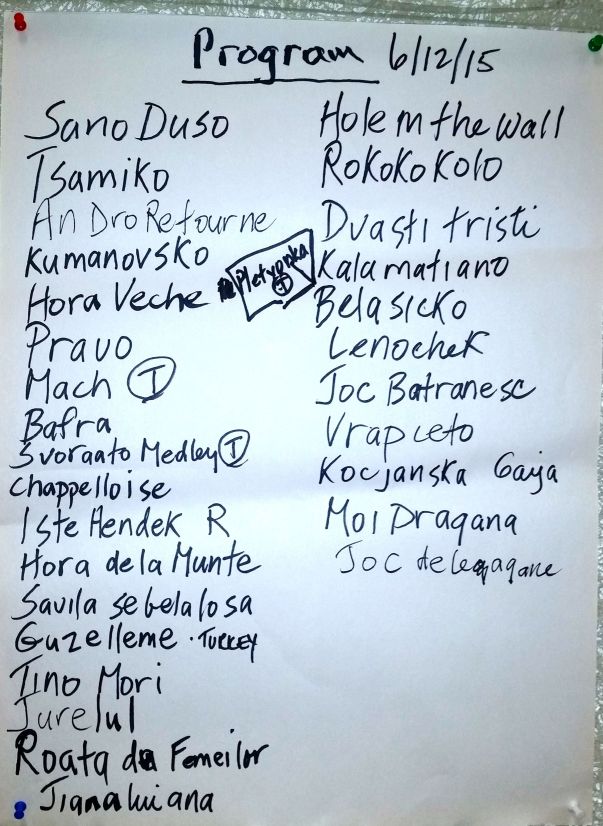 Program 6/12/15
Sano Duso
Tsamiko
An Dro Retourne
Kumanovsko
Hora Veche
Pletyonka T
Pravo
Mach T
Bafra
Svornato Medley T
Chappelloise
Iste Hendek R
Hora de la Munte
Savila se bela losa
Guzelleme · TURKEY
Tino Mori
Jurelul
Roata da Femeilor
Jiana lui ana
Hole in the Wall
Rokoko Kolo
Dvasti tristi
Kalamatiano
Belasicko
Lenochek
Joc Batranesc
Vrapceto
Kocjanska Gaija
Moi Dragana
Joc de